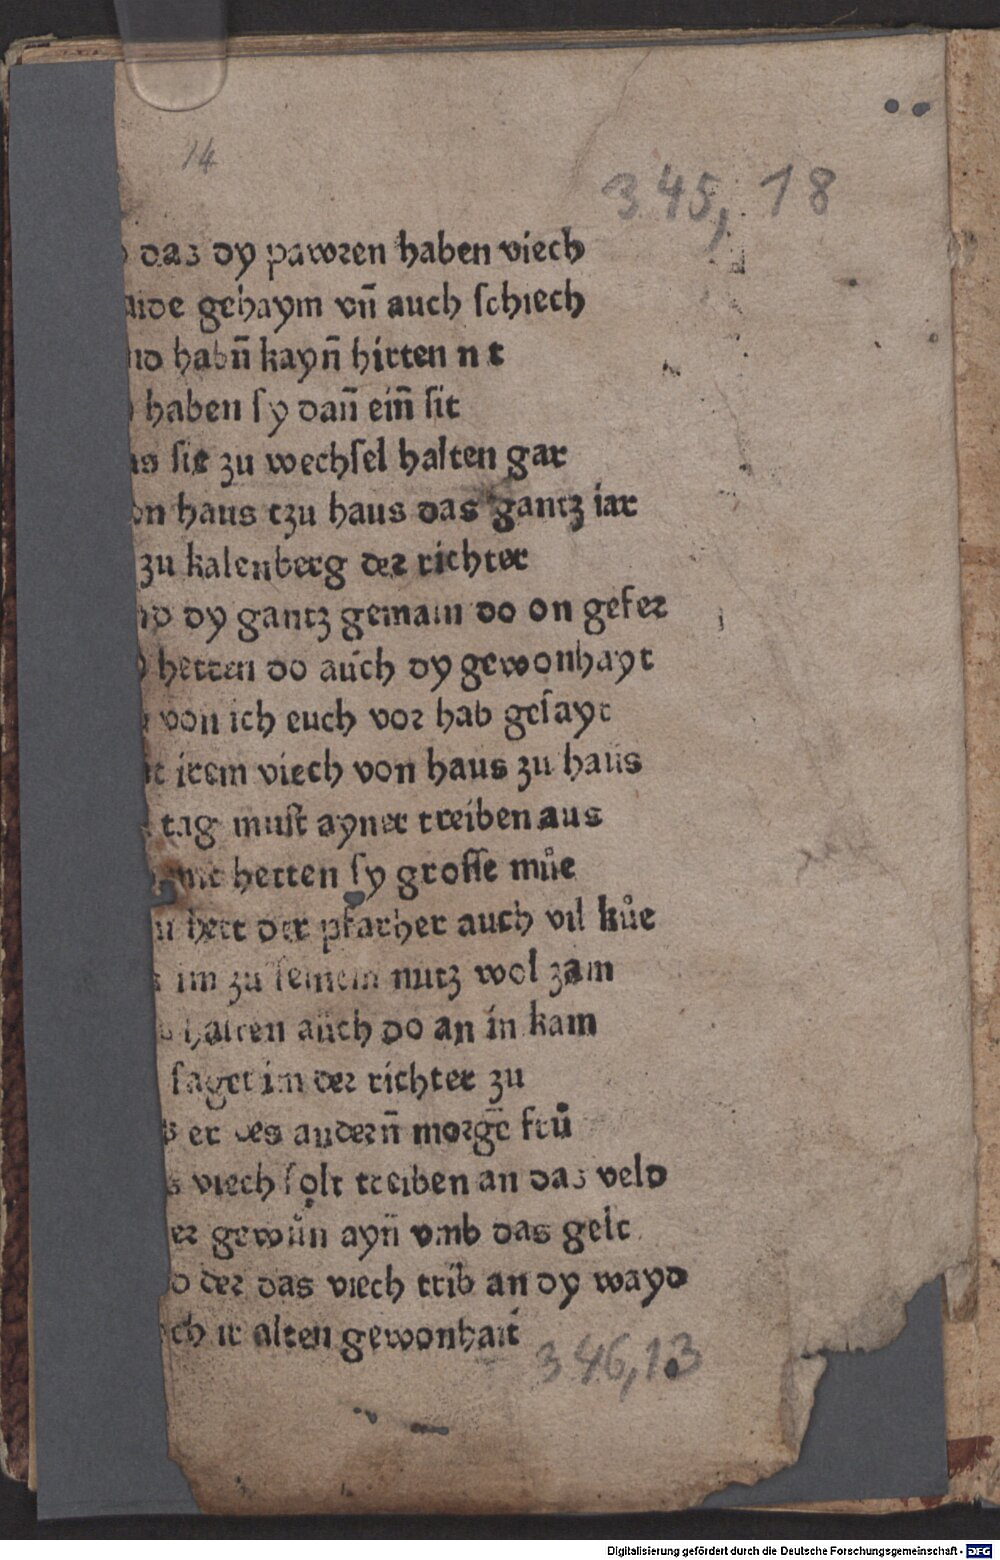 14
345, 18
daz dy pawren haben viech
gehaym vn̄ auch schiech
habn̄ kayn̄ hirten n t
haben sy dan̄ ein̄ sit
sie zu wechsel halten gar
haus tzu haus das gantz iar
zu kalenberg der richter
dy gantz gemain do on gefer
hetten do auch dy gewonhayt
von ich euch vor hab gesayt
irem viech von haus zu haus
tag must ayner treiben aus
hetten sy grosse můe
hett der pfarher auch vil kůe
im zu seinem nutz wol zam
halten auch do an in kam
saget im der richter zu
er des andern̄ morgē frů
viech solt treiben an das veld
gewůn ayn̄ vmb das gelt
der das viech trib an dy wayd
ir alten gewonhait
346,13
Digitalisierung gefördert durch die Deutsche Forschungsgemeinschaft - DFG